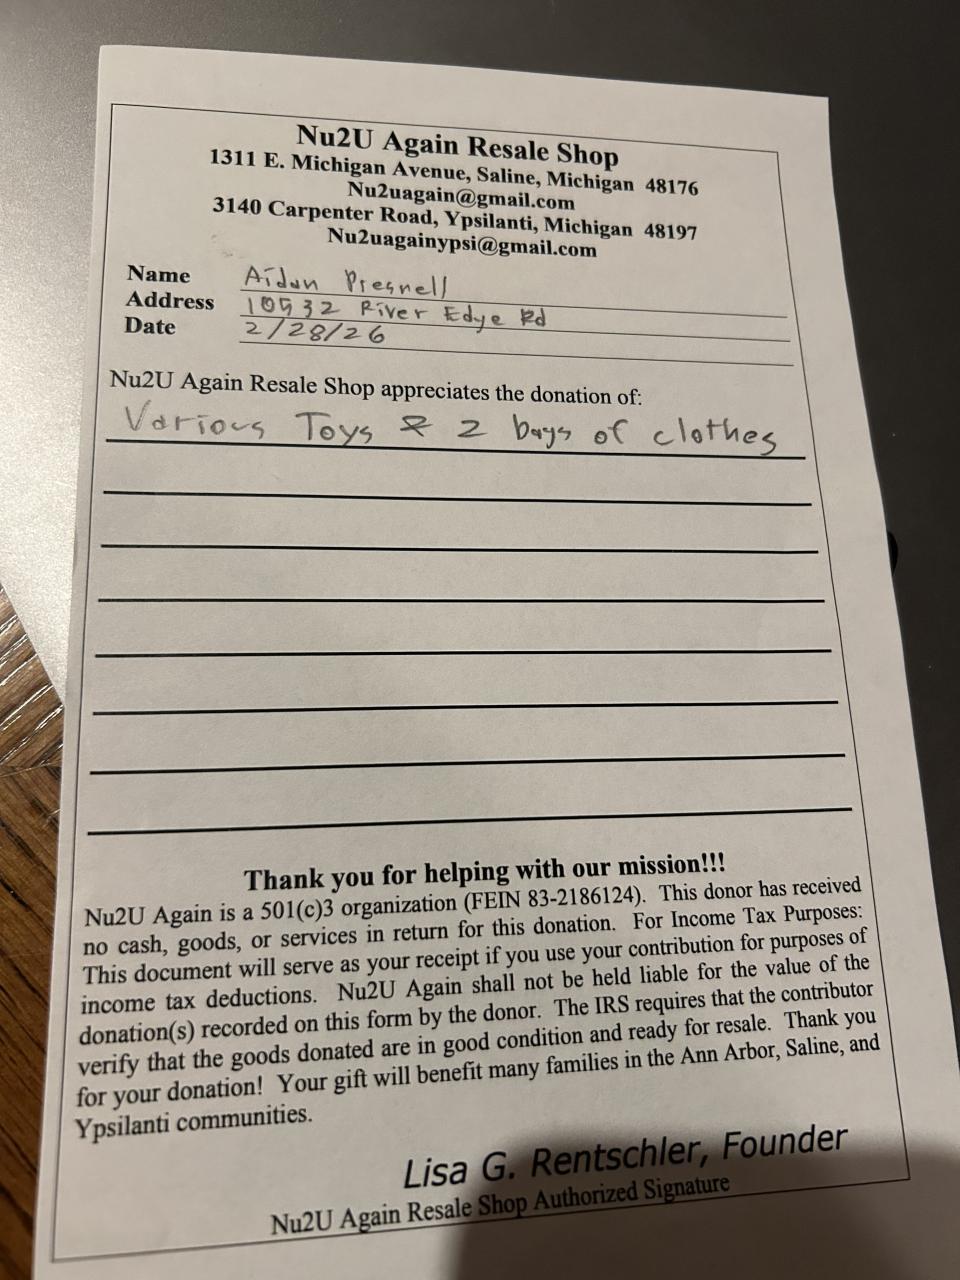 Nu2U Again Resale Shop
1311 E. Michigan Avenue, Saline, Michigan 48176
Nu2uagain@gmail.com
3140 Carpenter Road, Ypsilanti, Michigan 48197
Nu2uagainypsi@gmail.com
Name Aidan Presnell
Address River Edge Rd
Date 2/28/26
Nu2U Again Resale Shop appreciates the donation of:
Various Toys & 2 bags of clothes
Thank you for helping with our mission!!!
Nu2U Again is a 501(c)3 organization (FEIN 83-2186124). This donor has received
no cash, goods, or services in return for this donation. For Income Tax Purposes:
This document will serve as your receipt if you use your contribution for purposes of
income tax deductions. Nu2U Again shall not be held liable for the value of the
donation(s) recorded on this form by the donor. The IRS requires that the contributor
verify that the goods donated are in good condition and ready for resale. Thank you
for your donation! Your gift will benefit many families in the Ann Arbor, Saline, and
Ypsilanti communities.
Lisa G. Rentschler, Founder
Nu2U Again Resale Shop Authorized Signature